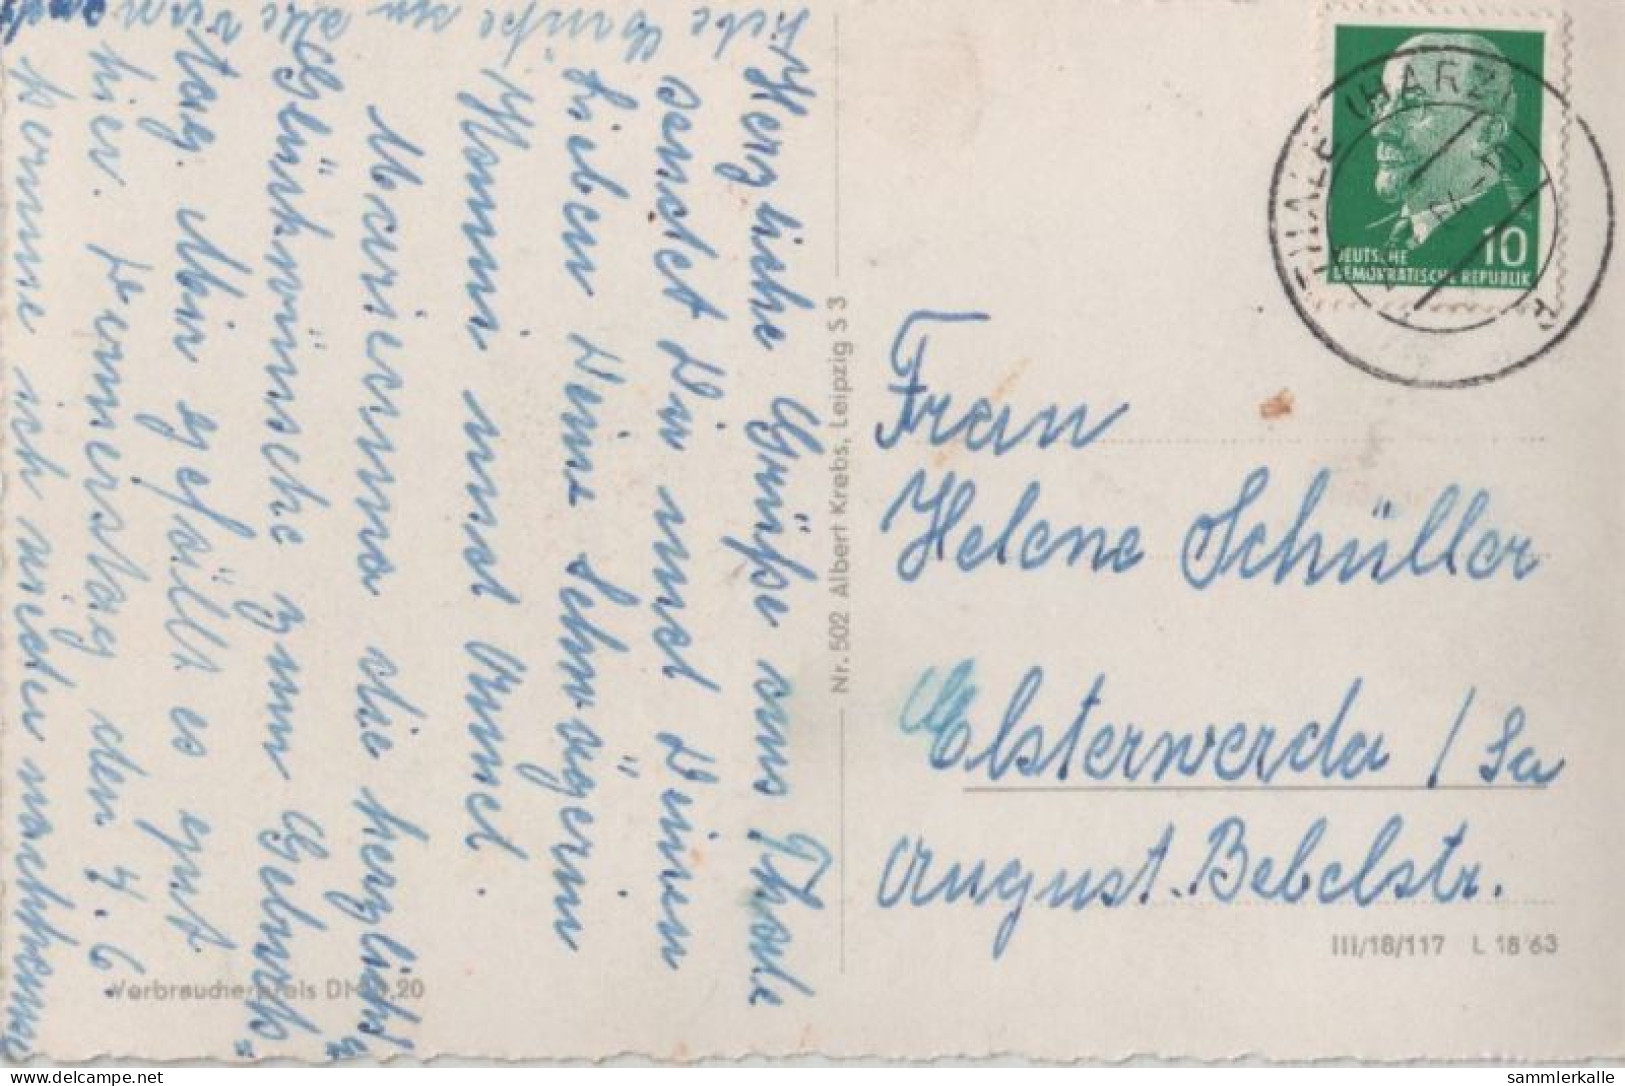 Herzliche Grüße aus Thale
sendet Dir und Deinen
Lieben Deine Schwägerin
Hanni und Armel.
Marianna die herzlichst
Glückwünsche zum Geburts=
tag. Mir gefällt es gut
hier. Donnerstag den 4. 6.
komme ich wieder nach
liebe Grüße an alle
Nr. 502 Albert Krebs, Leipzig S 3
Verbraucherpreis DM 0,20
THALE (HARZ)
10
DEUTSCHE
DEMOKRATISCHE REPUBLIK
Frau
Helene Schüller
Elsterwerda / Sa
August. Bebelstr.
III/18/117 L 18 63
www.delcampe.net
sammlerkalle